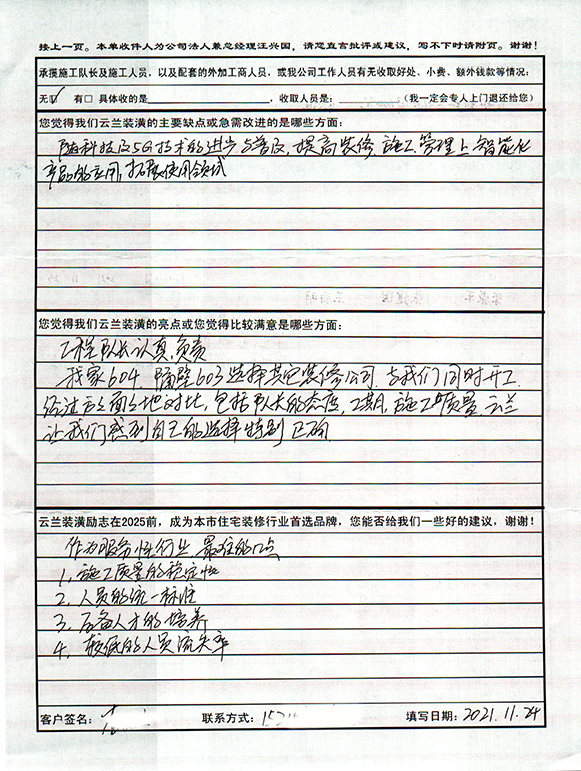 接上一页。本单收件人为公司法人兼总经理汪兴国，请您直言批评或建议，写不下时请附页。谢谢！
承揽施工队长及施工人员，以及配套的外加工商人员，或我公司工作人员有无收取好处、小费、额外钱款等情况：
无☑ 有□ 具体收的是，收取人员是：（我一定会专人上门退还给您）
您觉得我们云兰装潢的主要缺点或急需改进的是哪些方面：
随科技及5G技术的进步与普及，提高装修、施工、管理上智能化
产品的应用，拓展使用领域
您觉得我们云兰装潢的亮点或您觉得比较满意是哪些方面：
工程队长认真，负责
我家604，隔壁603选择其它装修公司，与我们同时开工
经过方方面面地对比，包括队长的态度，工期，施工质量 云兰
让我们感到自己的选择特别正确
云兰装潢励志在2025前，成为本市住宅装修行业首选品牌，您能否给我们一些好的建议，谢谢！
作为服务性行业，最难的几点
1，施工质量的稳定性
2，人员的统一标准
3，后备人才的培养
4，较低的人员流失率
客户签名： 联系方式： 填写日期：2021.11.24